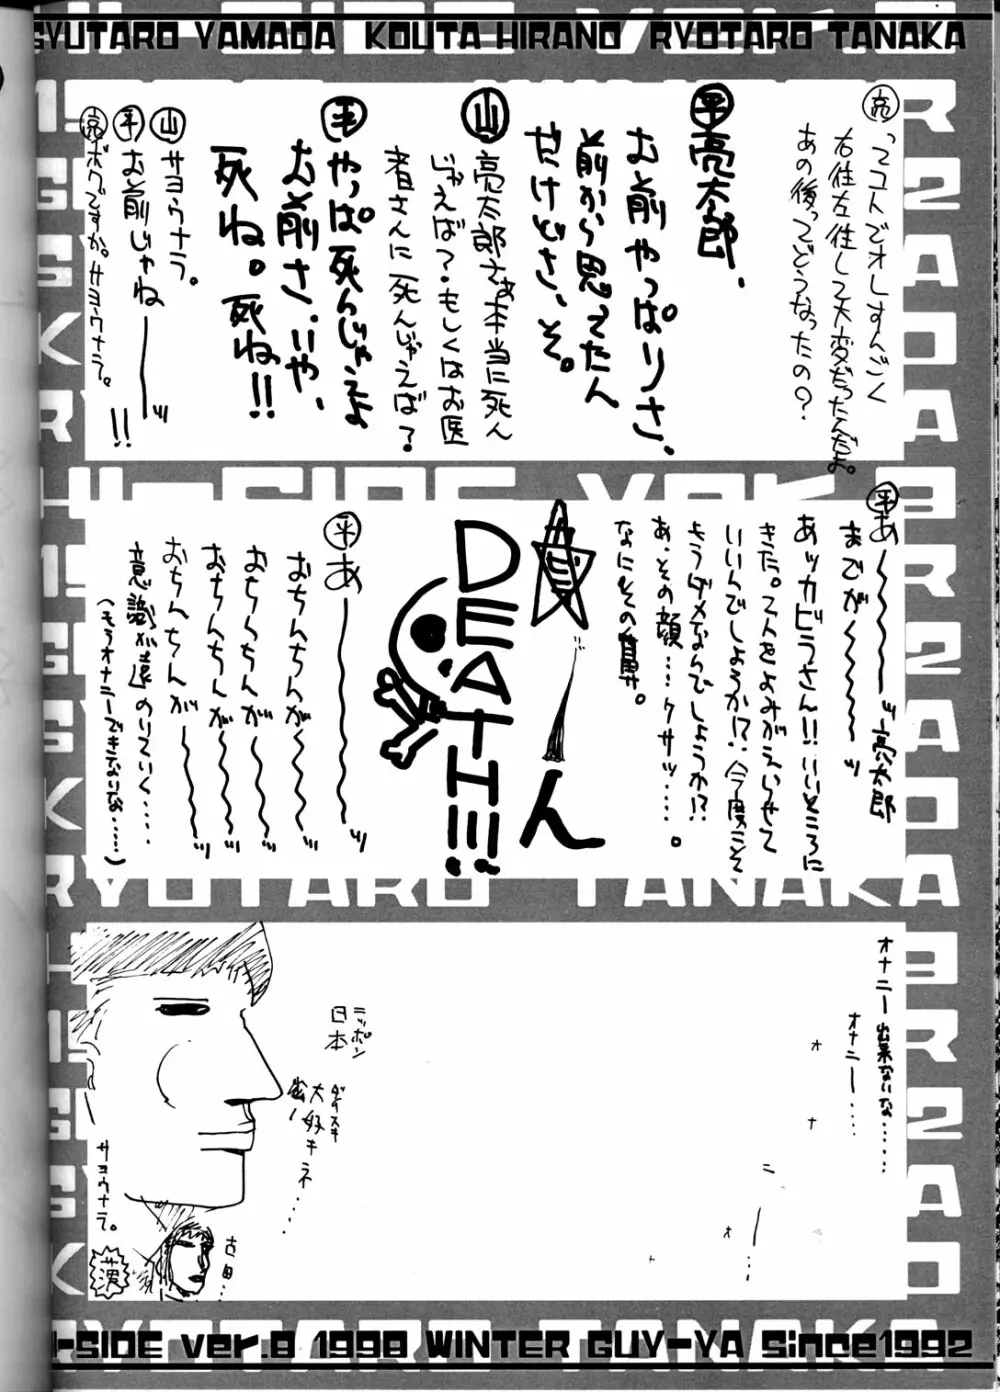 GYUTARO YAMADA KOUTA HIRANO RYOTARO TANAKA
亮 ってコトでオレすんごく
右往左往して大変だったんだよ。
あの後ってどうなったの?
平 亮太郎、
お前やっぱりさ、
前から思ってたん
だけどさ、そ。
山 亮太郎さぁ本当に死ん
じゃえば?もしくはお医
者さんに死んじゃえば?
平 やっぱ死んじゃえよ
お前さ、いや、
死ね。死ね!!
山 サヨウナラ。
平 お前じゃね――ッ!!
亮 ボクですか。サヨウナラ。
平 あ~~~~ッ亮太郎
までが~~~~ッ
あッカビラさん!!いいところに
きた。二人をよみがえらせて
いいんでしょうか!?今度こそ
もうダメなんでしょうか!?
あ、その顔…クサッ……。
なにその
ん
DEATH!!!
平 あ――――ッ
おちんちんが~~~~ッ
おちんちんが~~~~ッ
おちんちんが~~~~ッ
おちんちんが~~~~ッ
意識が遠のいていく……
(もうオナニーできないな……)
オナニー出来ないな……
オナニー……
オ
ナ
ニ
ー…
オ
ニッポン
日本
ダイスキ
大好キネ…
サヨウナラ。
古田…
H-SIDE ver.8 1998 WINTER GUY-YA Since1992
H-SIDE ver.8
RYOTARO TANAKA